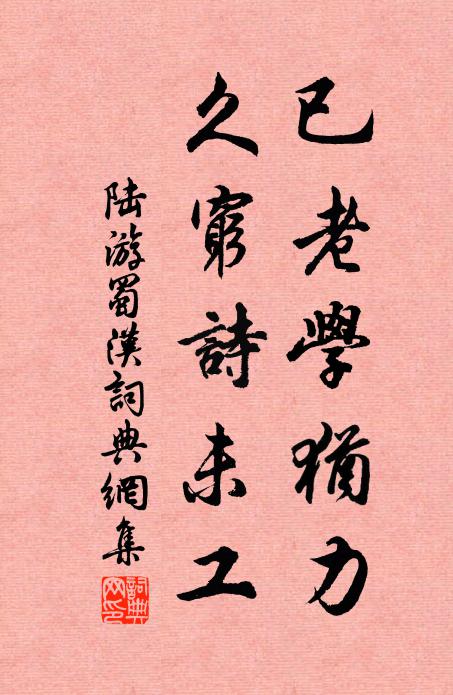 已老學猶力
久窮詩未工
陸游蜀漢詞典網集
詞典網印